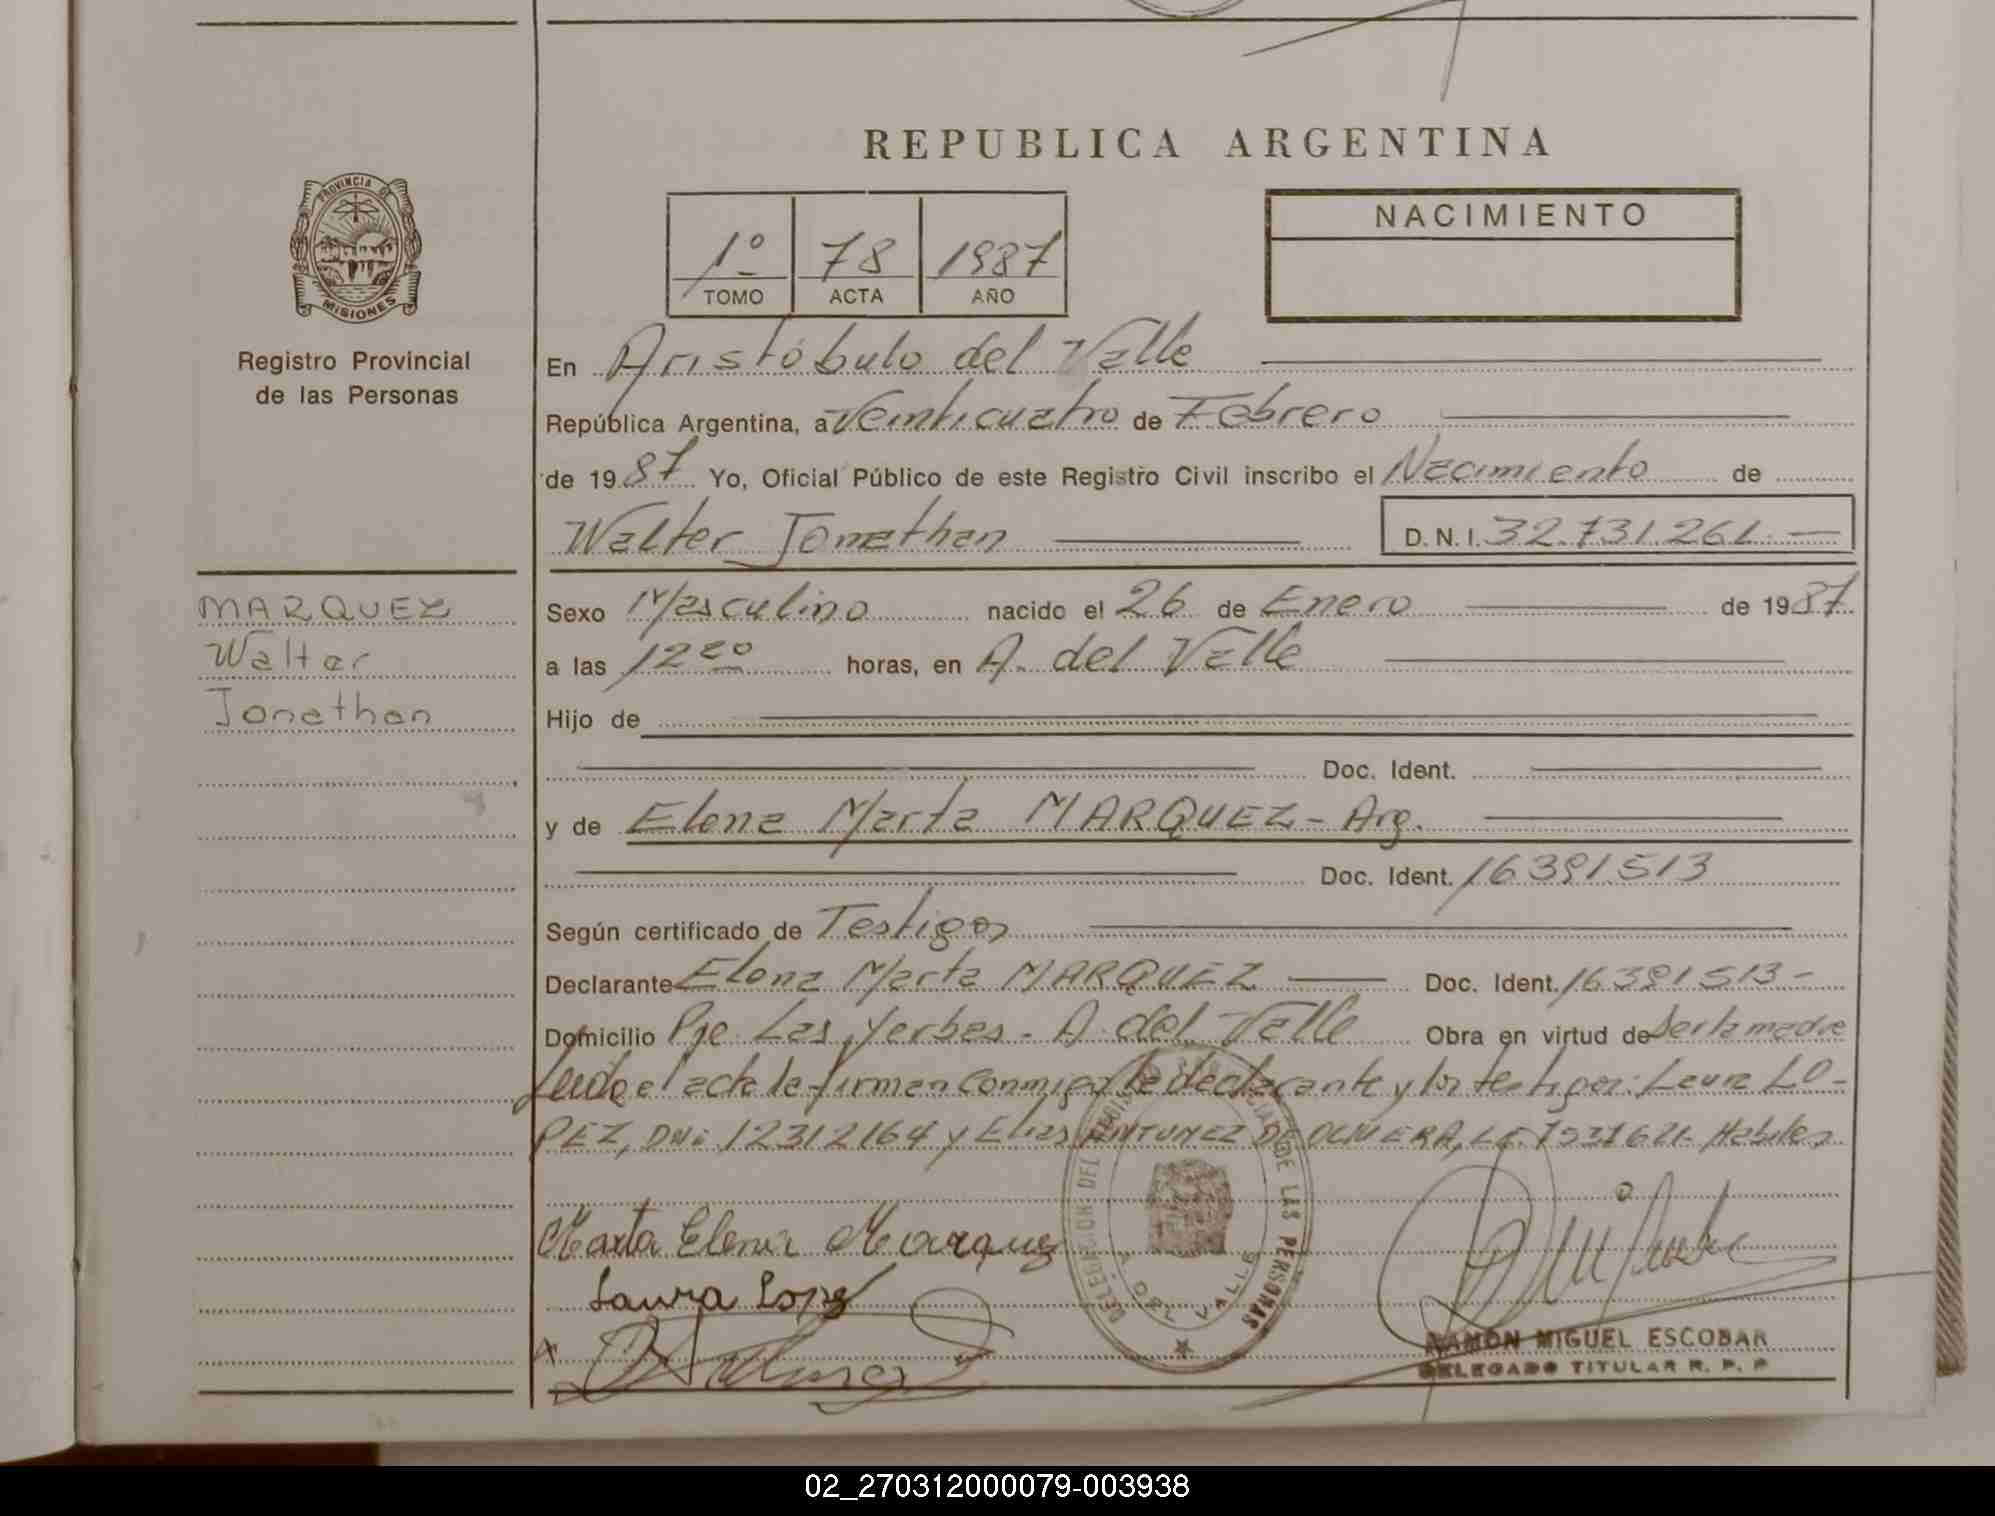 REPUBLICA ARGENTINA
PROVINCIA DE
MISIONES
Registro Provincial
de las Personas
1º 78 1987
TOMO ACTA AÑO
NACIMIENTO
En Aristóbulo del Valle
República Argentina, a Veinticuatro de Febrero
de 1987 Yo, Oficial Público de este Registro Civil inscribo el Nacimiento de
Walter Jonathan D.N.I. 32.731.261.-
MARQUEZ
Walter
Jonathan
Sexo Masculino nacido el 26 de Enero de 1987
a las 12 horas, en A. del Valle
Hijo de
Doc. Ident.
y de Elena Marta MARQUEZ - Arg.
Doc. Ident. 16391513
Según certificado de Testigos
Declarante Elena Marta MARQUEZ Doc. Ident. 16391513-
Domicilio Pje. Las Yerbas - A. del Valle Obra en virtud de Ser la madre
Leida el acta la firman conmigo la declarante y los testigos: Laura LO-
PEZ, DNI 12312164 y Elias ANTUNEZ DE OLIVERA, Habiles
Marta Elena Marquez
Laura Lopez
DELEGACION DEL REGISTRO PROVINCIAL DE LAS PERSONAS
A. DEL VALLE
RAMON MIGUEL ESCOBAR
DELEGADO TITULAR R. P. P
02_270312000079-003938